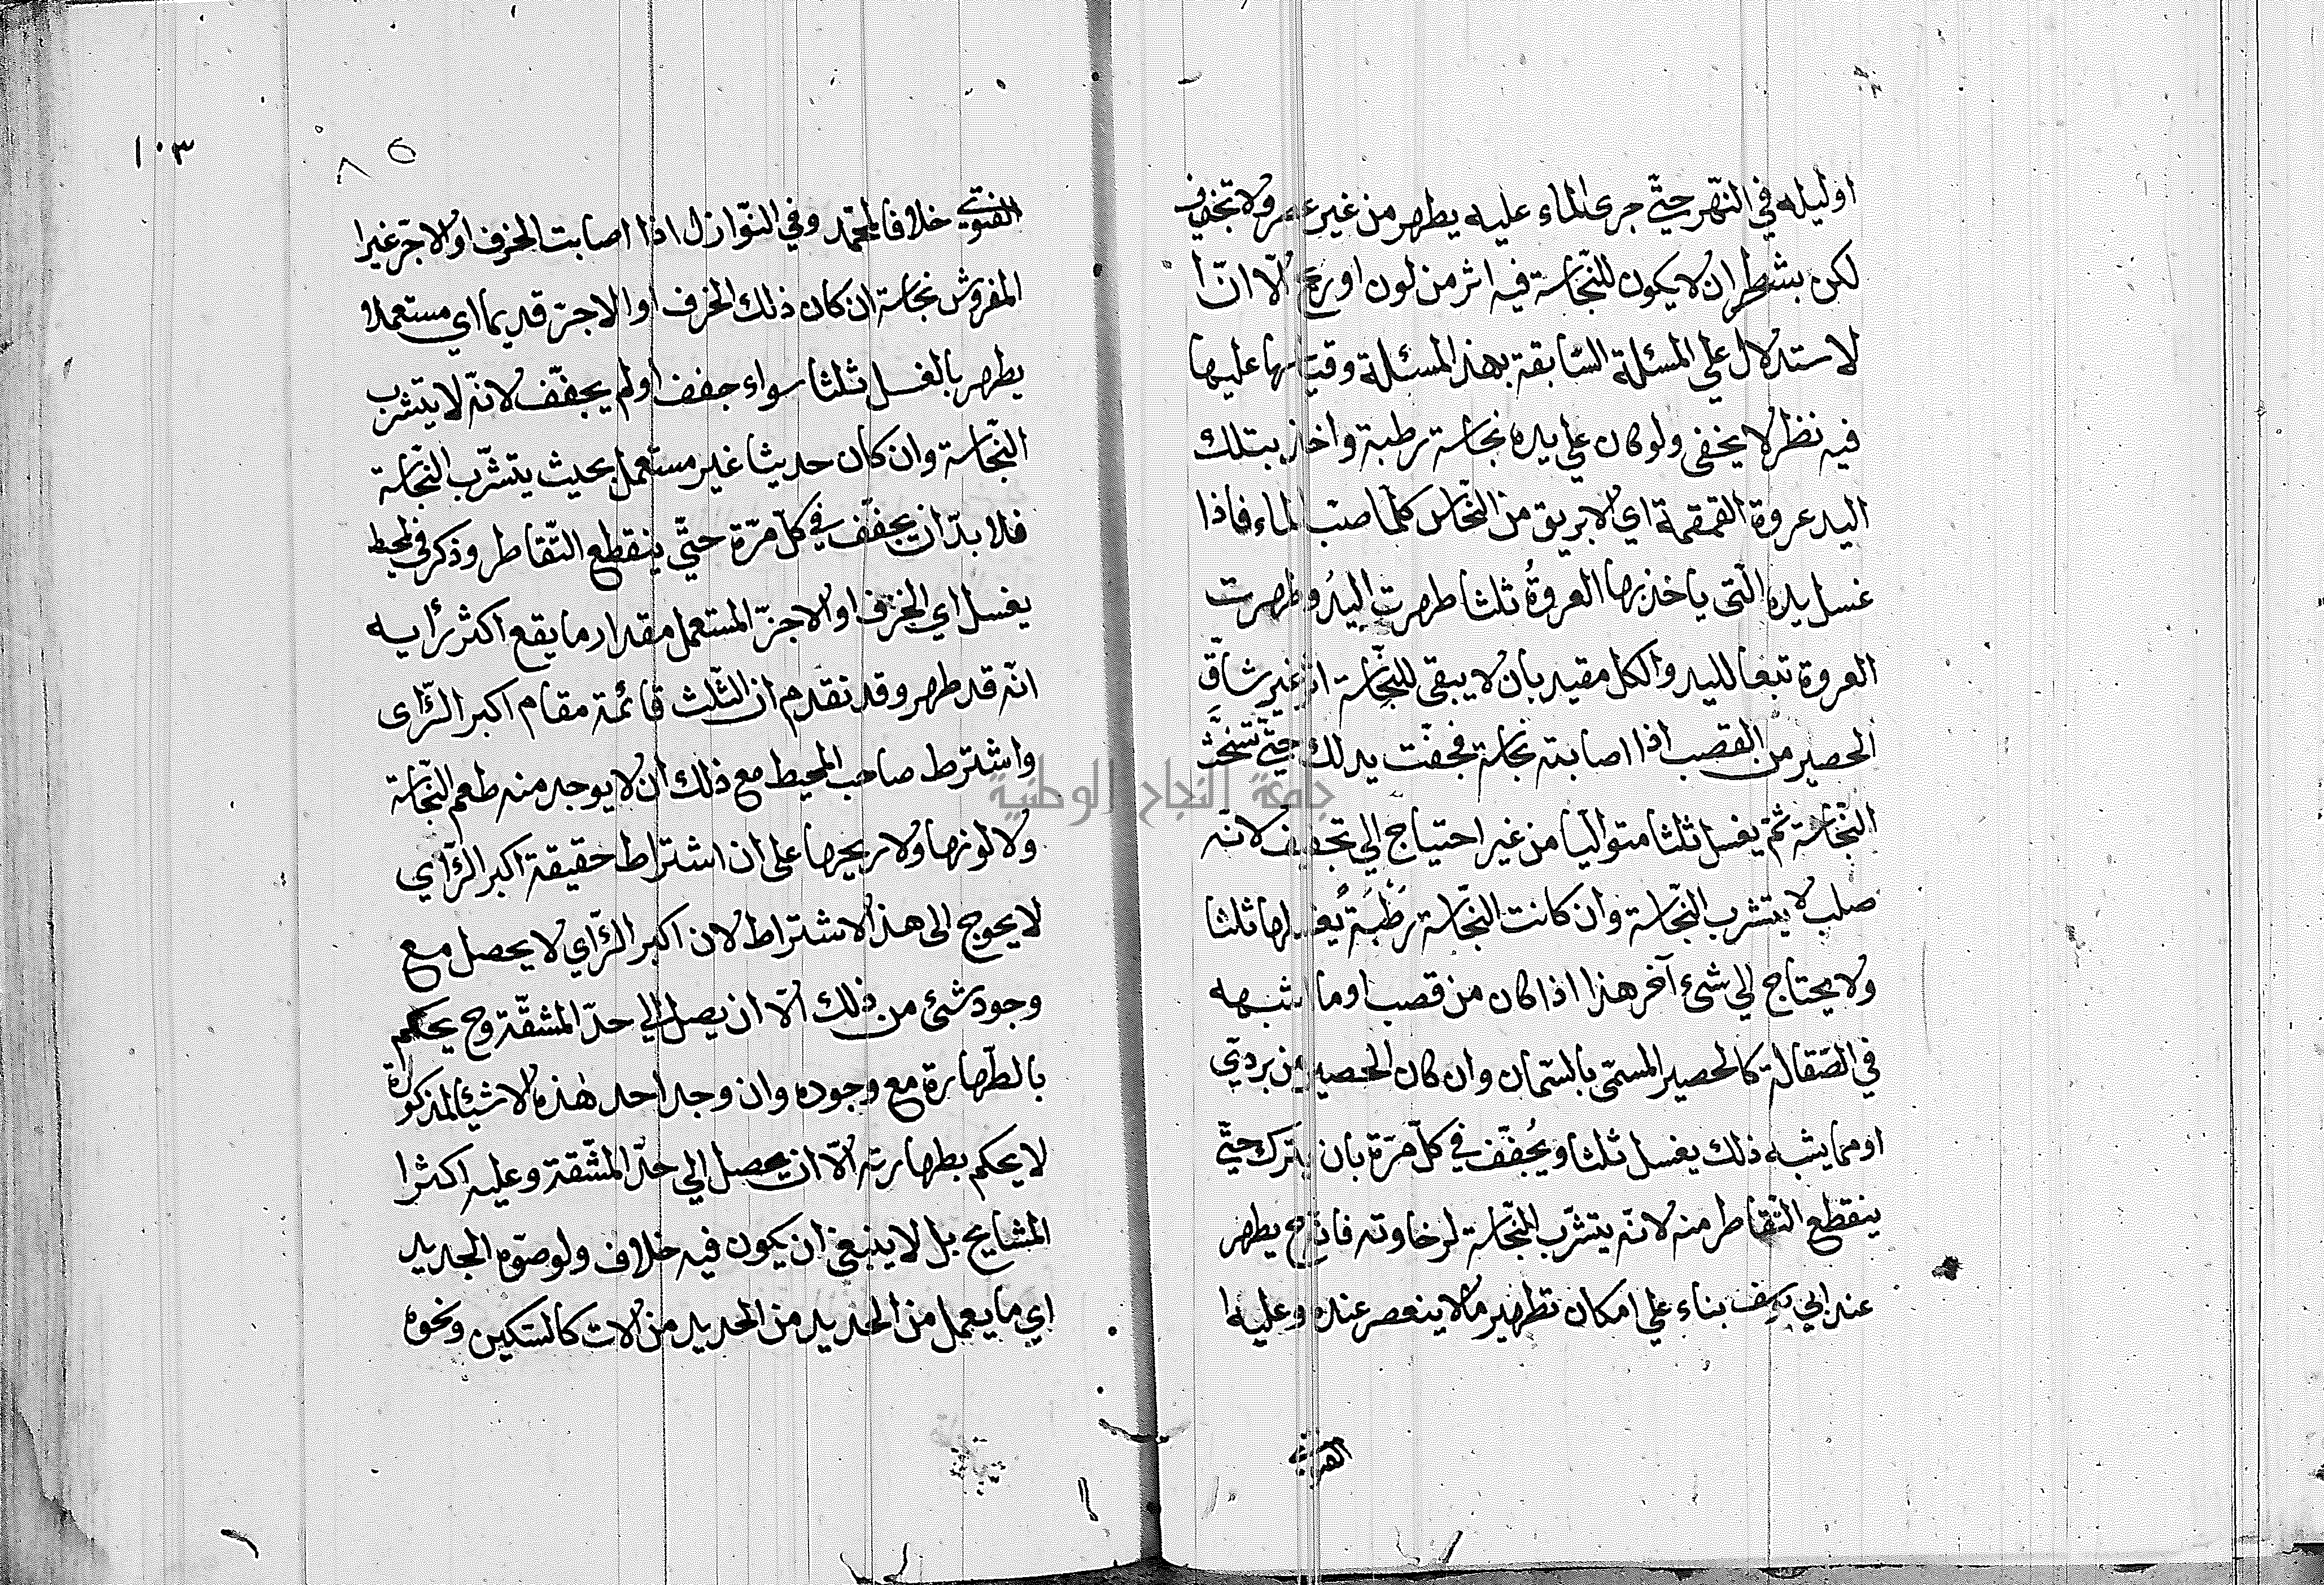 او ليله في النّهر حتّى جرى الماء عليه يطهر من غير عصر ولا تجفيف
لكن بشطران لا يكون للنّجاسة فيه اثر من لون او ريح الّا انّ ا
لاستدلال على المسئلة السّابقة بهذا المسئلة وقياسها عليها
فيه نظر لا يخفى ولو كان على يده نجاسة رطبة واخذ بتلك
اليد عروة القمقمة اي الابريق من النّحاس كلّما صبّ الماء فاذا
غسل يده الّتى ياخذ بها العروةُ ثلثا طهرت اليدُ وطهرت
العروة تبعا لليد والكل مقيد بان لا يبقى للنّجاسة اثر غير شاقٍّ
الحصير من القصب اذا اصابته نجاسة فجفّت يدلك حتّى تنحتّ
النّجاسة ثمّ يغسل ثلثا متواليا من غير احتياج الي تجفيف لانّه
صلب لا يتشرب النّجاسة وان كانت النّجاسة رطبةً يغسلها ثلثا
ولا يحتاج الي شئ آخر هذا اذا كان من قصب او ما يشبهه
في الصّقالة كالحصير المسمّى بالسّمان وان كان الحصير من برديّ
او ممّا يشبه ذلك يغسل ثلثا ويُجفّف في كلّ مرّة بان يترك حتّى
ينقطع التّقاطر منه لانّه يتشرّب النّجاسة لرخاوته فانّه ح يطهر
عند ابي يوسف بناء على امكان تطهير ما لا ينعصر عنده وعليه ا
الفتوى
١٠٣
٨٥
الفتوى خلافا لمحمّد وفي النّوازل اذا اصابت الخزف او الاجرّ غير ا
المفروش نجاسة ان كان ذلك الخزف او الاجرّ قديما اي مستعملا
يطهر بالغسل ثلثا سواء جفف او لم يجفّف لانّه لا يتشرب
النّجاسة وان كان حديثا غير مستعمل بحيث يتشرّب النّجاسة
فلا بدّ ان يجفّف في كلّ مرّة حتّى ينقطع التّقاطر وذكر في المحيط
يغسل اي الخزف او الاجرّ المستعمل مقدار ما يقع اكثر رأيه
انّه قد طهر وقد تقدم ان الثّلث قائمة مقام اكبر الرّاى
واشترط صاحب المحيط مع ذلك ان لا يوجد منه طعم النّجاسة
ولا لونها ولا ريحها على ان اشتراط حقيقة اكبر الرّآي
لا يحوج الى هذ الاشتراط لان اكبر الرّآي لا يحصل مع
وجود شئ من ذلك الّا ان يصل الي حدّ المشقّة وح يحكم
بالطّهارة مع وجوده وان وجد احد هٰذه الاشيئا المذكورة
لا يحكم بطهارته الّا ان يحصل الي حدّ المشّقة وعليه اكثر ا
المشايخ بل لا ينبغي ان يكون فيه خلاف ولو صوّه الجديد
اي ما يعمل من الحديد من الحديد من الات كالسّكين ونحوه
جامعة النجاح الوطنية